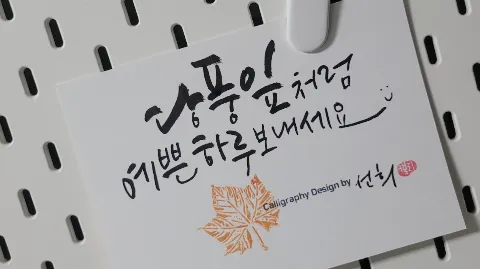 단풍잎처럼
예쁜하루보내세요
Calligraphy Design by 선희